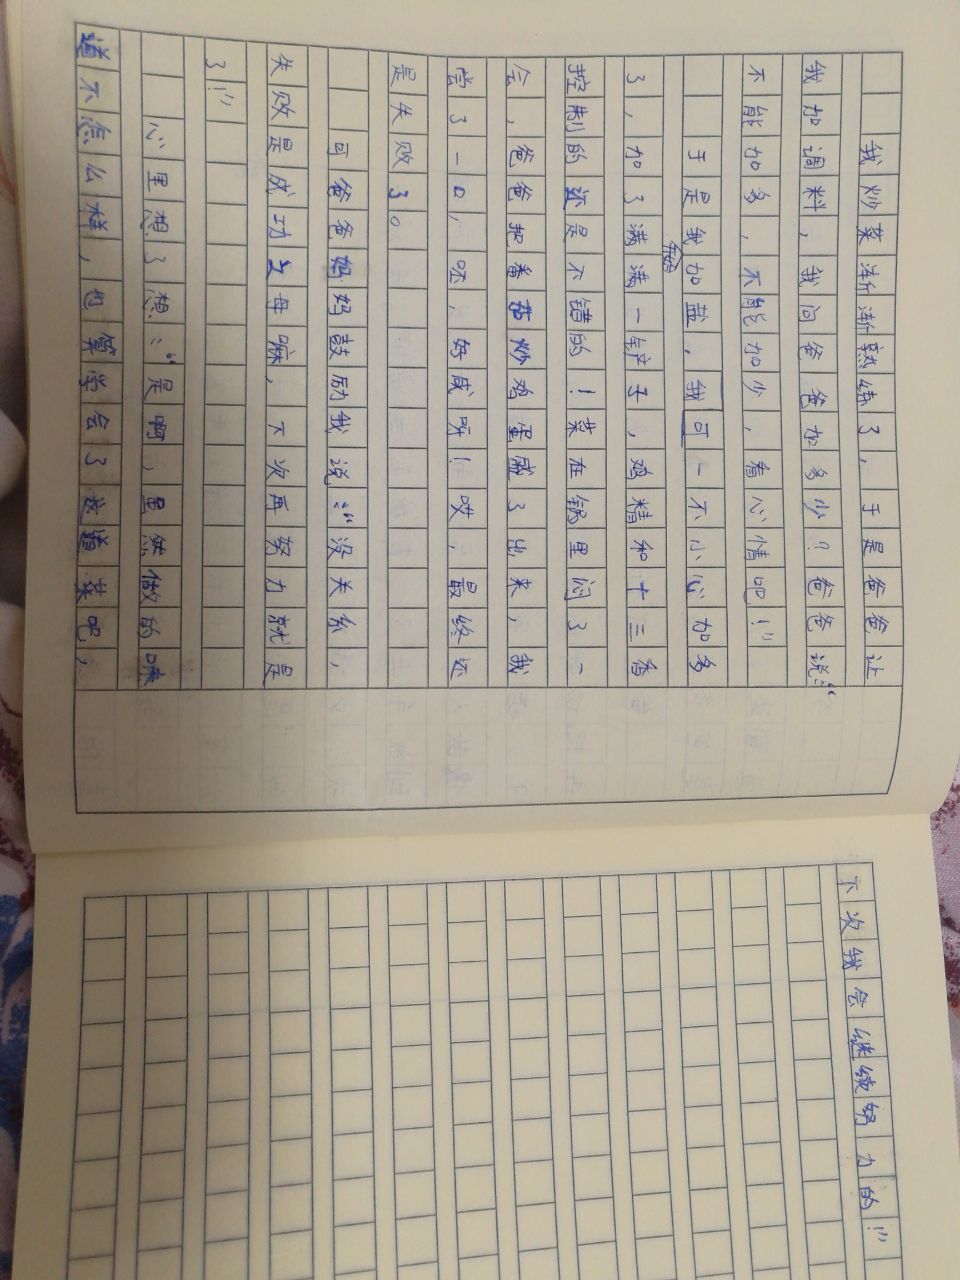 我炒菜渐渐熟练了，于是爸爸让
我加调料，我问爸爸加多少？爸爸说：“
不能加多，不能加少，看心情吧！”
于是我加盐，我可一不小心加多
了，加了满满一铲子，鸡精和十三香
控制的还是不错的！菜在锅里闷了一
会，爸爸把番茄炒鸡蛋盛了出来，我
尝了一口，呸，好咸呀！哎，最终还
是失败了。
可爸爸妈妈鼓励我说：“没关系，
失败是成功之母嘛，下次再努力就是
了！”
心里想了想：“是啊，虽然做的味
道不怎么样，也算学会了这道菜吧，
下次我会继续努力的！”